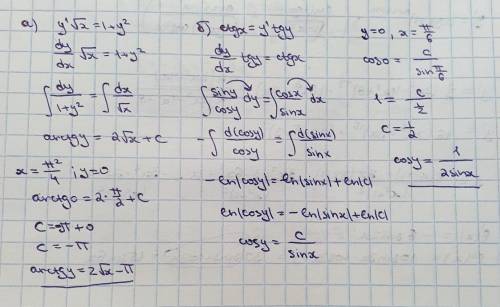 а) y'√x = 1+y²
dy/dx √x = 1+y²
∫ dy/(1+y²) = ∫ dx/√x
arctgy = 2√x + c
x = π²/4 ; y=0
arctg0 = 2·π/2 + c
c = -π + 0
c = -π
arctgy = 2√x - π
б) ctgx = y'tgy
dy/dx tgy = ctgx
∫ siny/cosy dy = ∫ cosx/sinx dx
-∫ d(cosy)/cosy = ∫ d(sinx)/sinx
-ln|cosy| = ln|sinx| + ln|c|
ln|cosy| = -ln|sinx| + ln|c|
cosy = c/sinx
y=0, x = π/6
cos0 = c/sin π/6
1 = c/½
c = 1/2
cosy = 1/2sinx